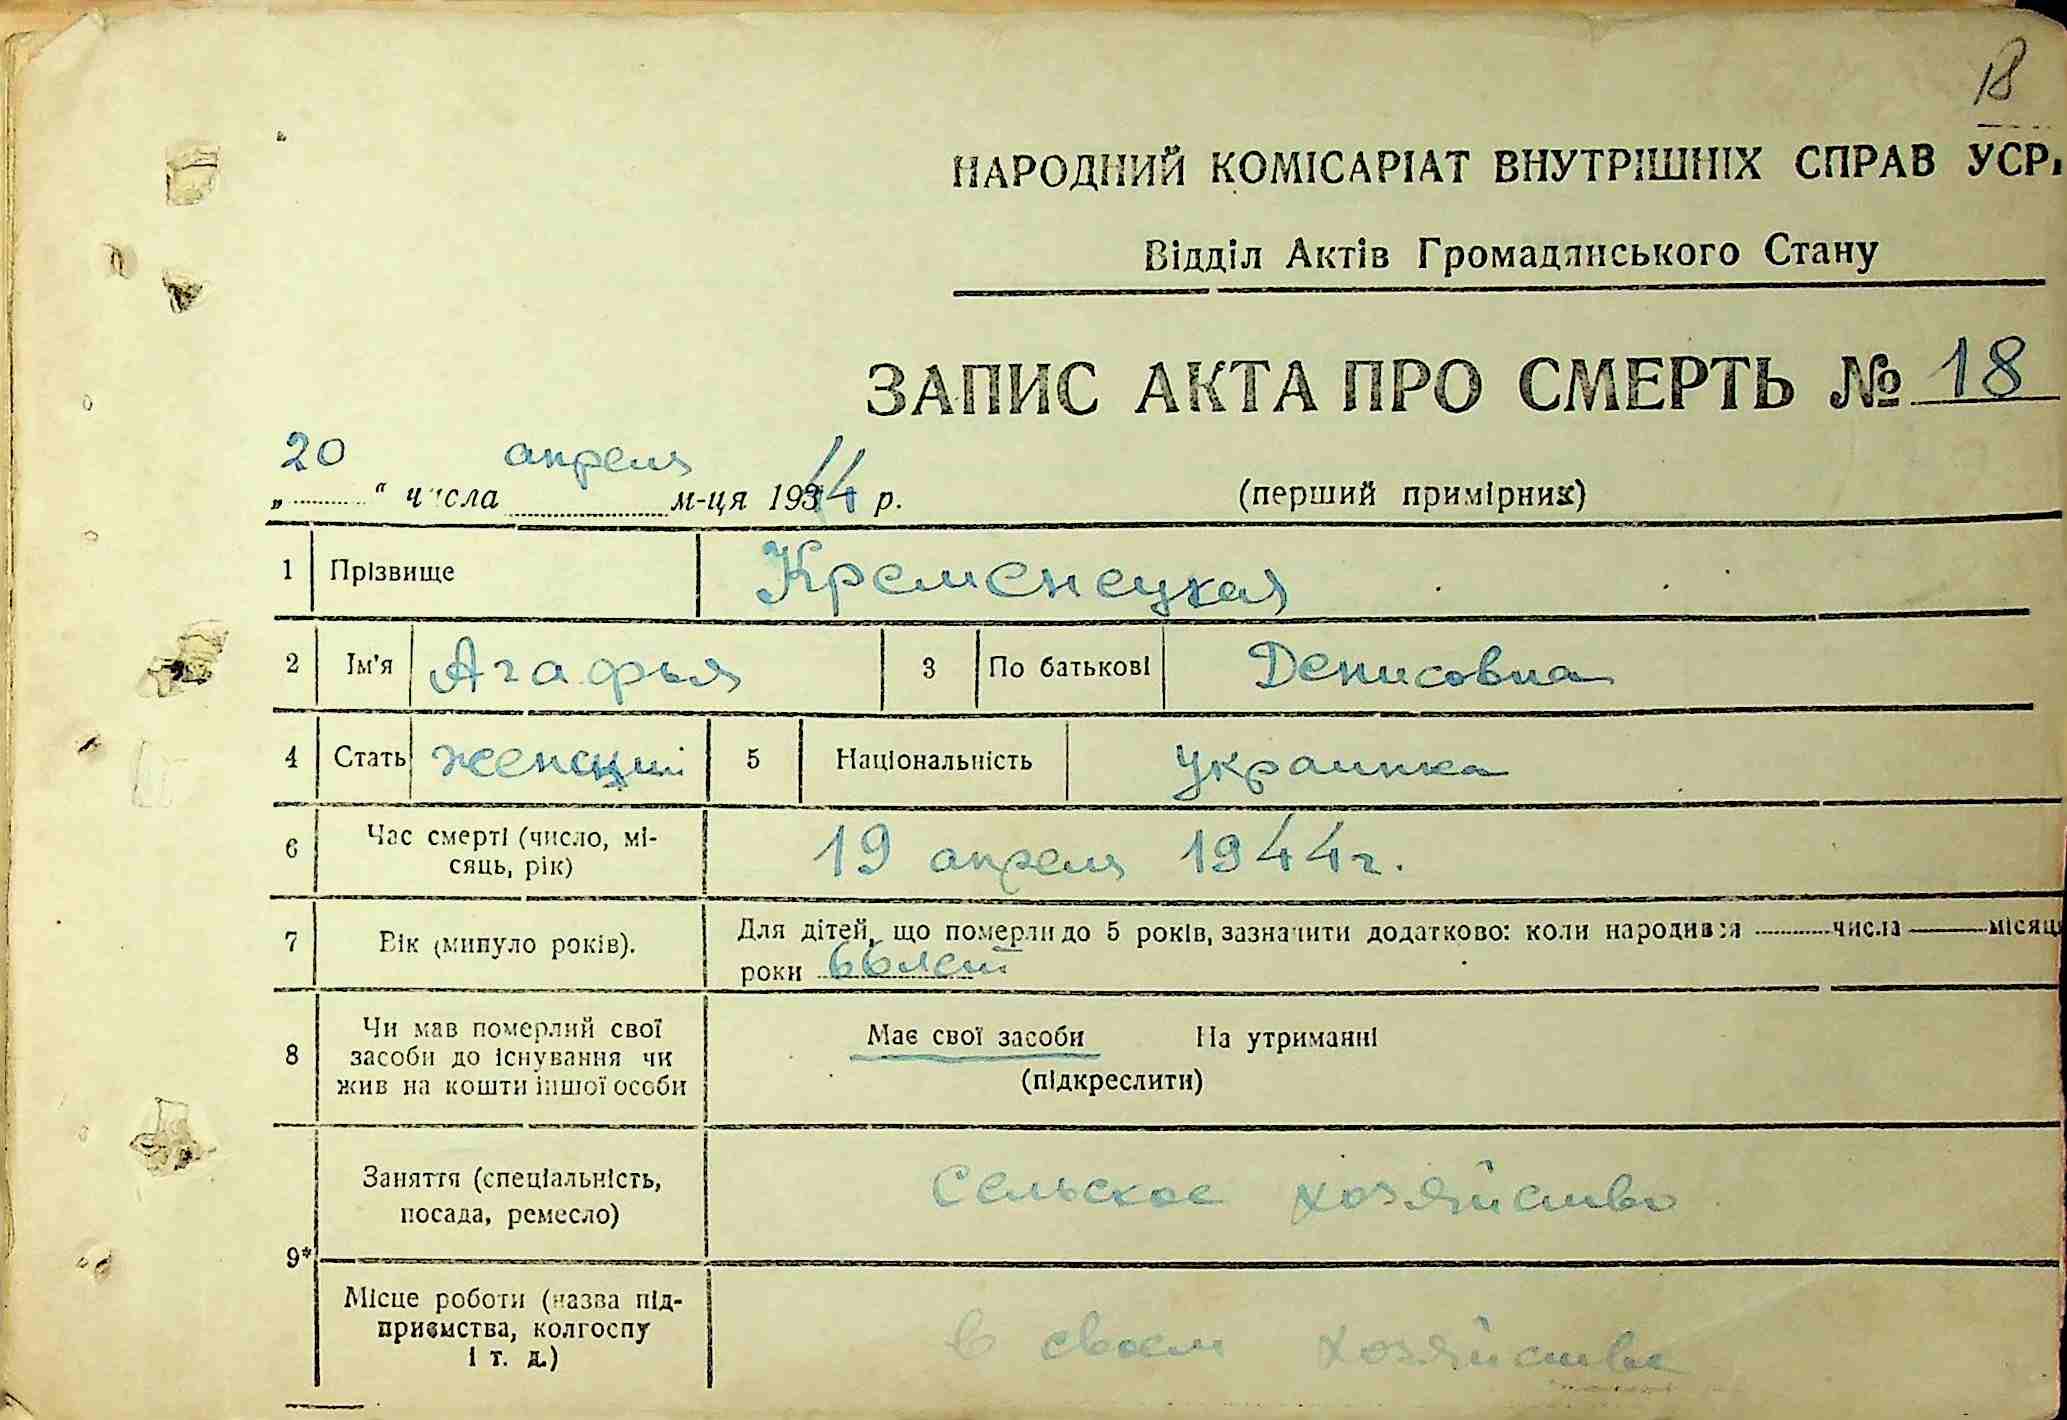 18
НАРОДНИЙ КОМІСАРІАТ ВНУТРІШНІХ СПРАВ УСР
Відділ Актів Громадянського Стану
ЗАПИС АКТА ПРО СМЕРТЬ № 18
„20“ числа апреля м-ця 1944 р. (перший примірник)
1 Прізвище Кременецкая
2 Ім'я Агафья 3 По батькові Денисовна
4 Стать женский 5 Національність украинка
6 Час смерті (число, мі-
сяць, рік) 19 апреля 1944 г.
7 Вік (минуло років). Для дітей, що померли до 5 років, зазначити додатково: коли народився числа місяц
роки 66 лет
8 Чи мав померлий свої
засоби до існування чи
жив на кошти іншої особи Має свої засоби На утриманні
(підкреслити)
9* Заняття (спеціальність,
посада, ремесло) сельское хозяйство
Місце роботи (назва під-
приємства, колгоспу
і т. д.) в своем хозяйстве